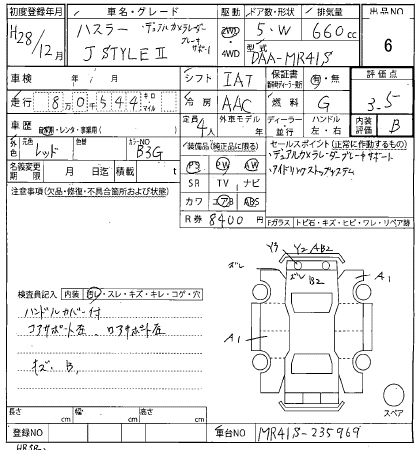 初度登録年月 車名・グレード 駆動 ドア数・形状 排気量 出品NO
H28/12月 ハスラー デュアルカメラレーダーブレーキサポート 2WD 5・W 660cc 6
J STYLE II 4WD 型式 DAA-MR41S
車検 年 月 シフト IAT 保証書 有・無 評価点
走行 8万0千544キロ マイル 冷房 AAC 燃料 G 3.5
車歴 自家用・レンタ・事業用( ) 定員 4人 外車モデル 年 ディーラー 並行 ハンドル 左・右 内装評価 B
外色 元色 レッド 色替 カラーNO B3G 装備品(純正品に限る) セールスポイント(正常に作動するもの)
PS PW AW ・デュアルカメラレーダーブレーキサポート
名義変更期限 月 日迄 積載 t SR TV ナビ ・アイドリングストップシステム
注意事項(欠品・修復・不具合箇所および状態) カワ エアB ABS
R券 8400円 Fガラス トビ石・キズ・ヒビ・ワレ・リペア跡
Y3 Y2 AB2
ズレ ズレ B2 A1
検査員記入 内装 ヨゴレ・スレ・キズ・キレ・コゲ・穴
ハンドルカバー付
コアサポート左 ロアサポート左 A1
キズ、B、
スペア
長さ cm 幅 cm 高さ cm
登録NO 車台NO MR41S-235969